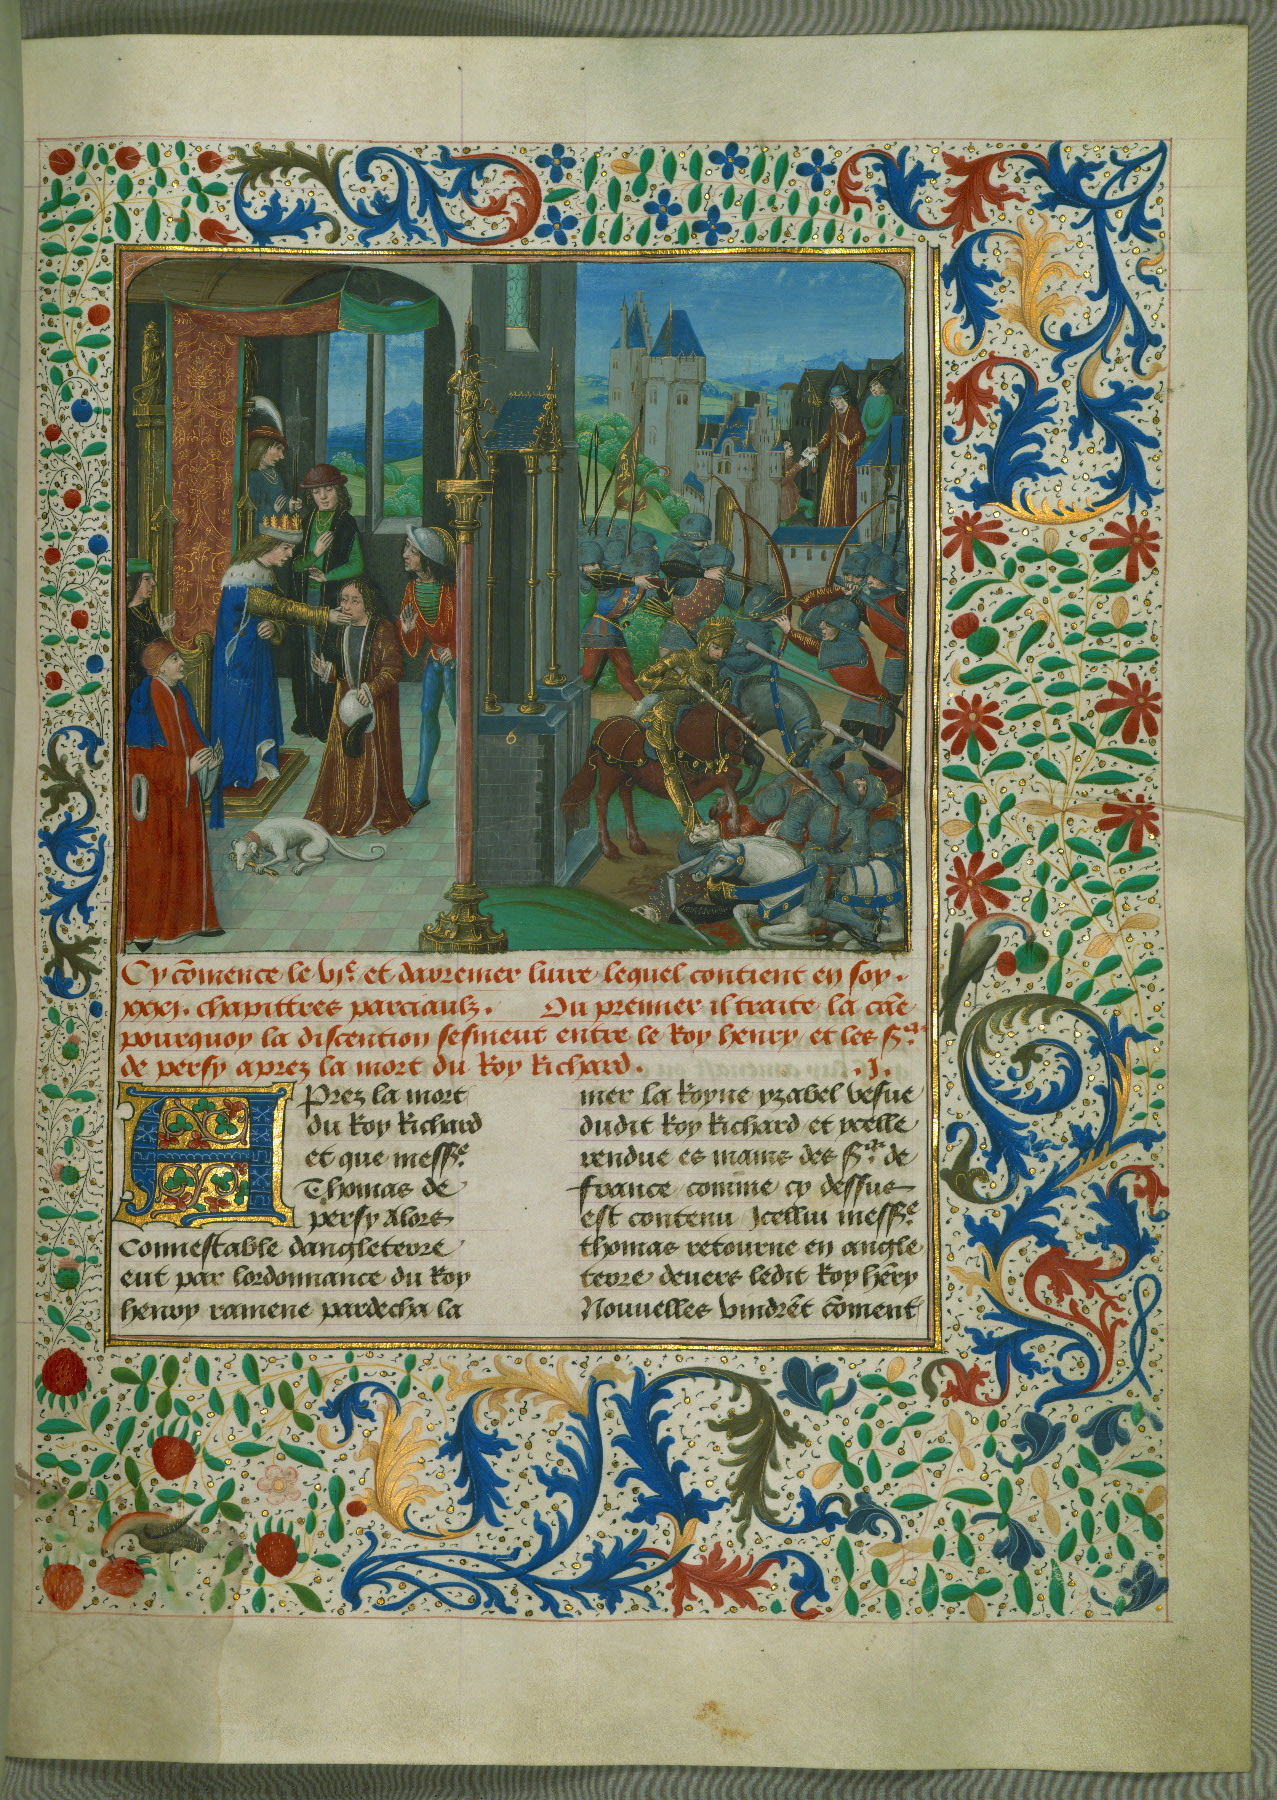 Cy cōmence le vj.e et derrenier livre lequel contient en soy .
xxxj. chapittres parciaulx . Ou premier il traite la cāe
pourquoy la discention sesmeut entre le Roy henry et les s.rs
de persy aprez la mort du Roy Richard . .J.
APrez la mort
du Roy Richard
et que mess.e
Thomas de
persy Alors
Connestable dangleterre
eut par lordonnance du Roy
henry ramene pardecha la
mer la Royne yzabel vefue
dudit Roy Richard et ycelle
rendue es mains des s.rs de
france comme cy dessus
est contenu Jcellui mess.e
thomas retourne en angle
terre devers ledit Roy hēry
Nouvelles vindrēt cōment